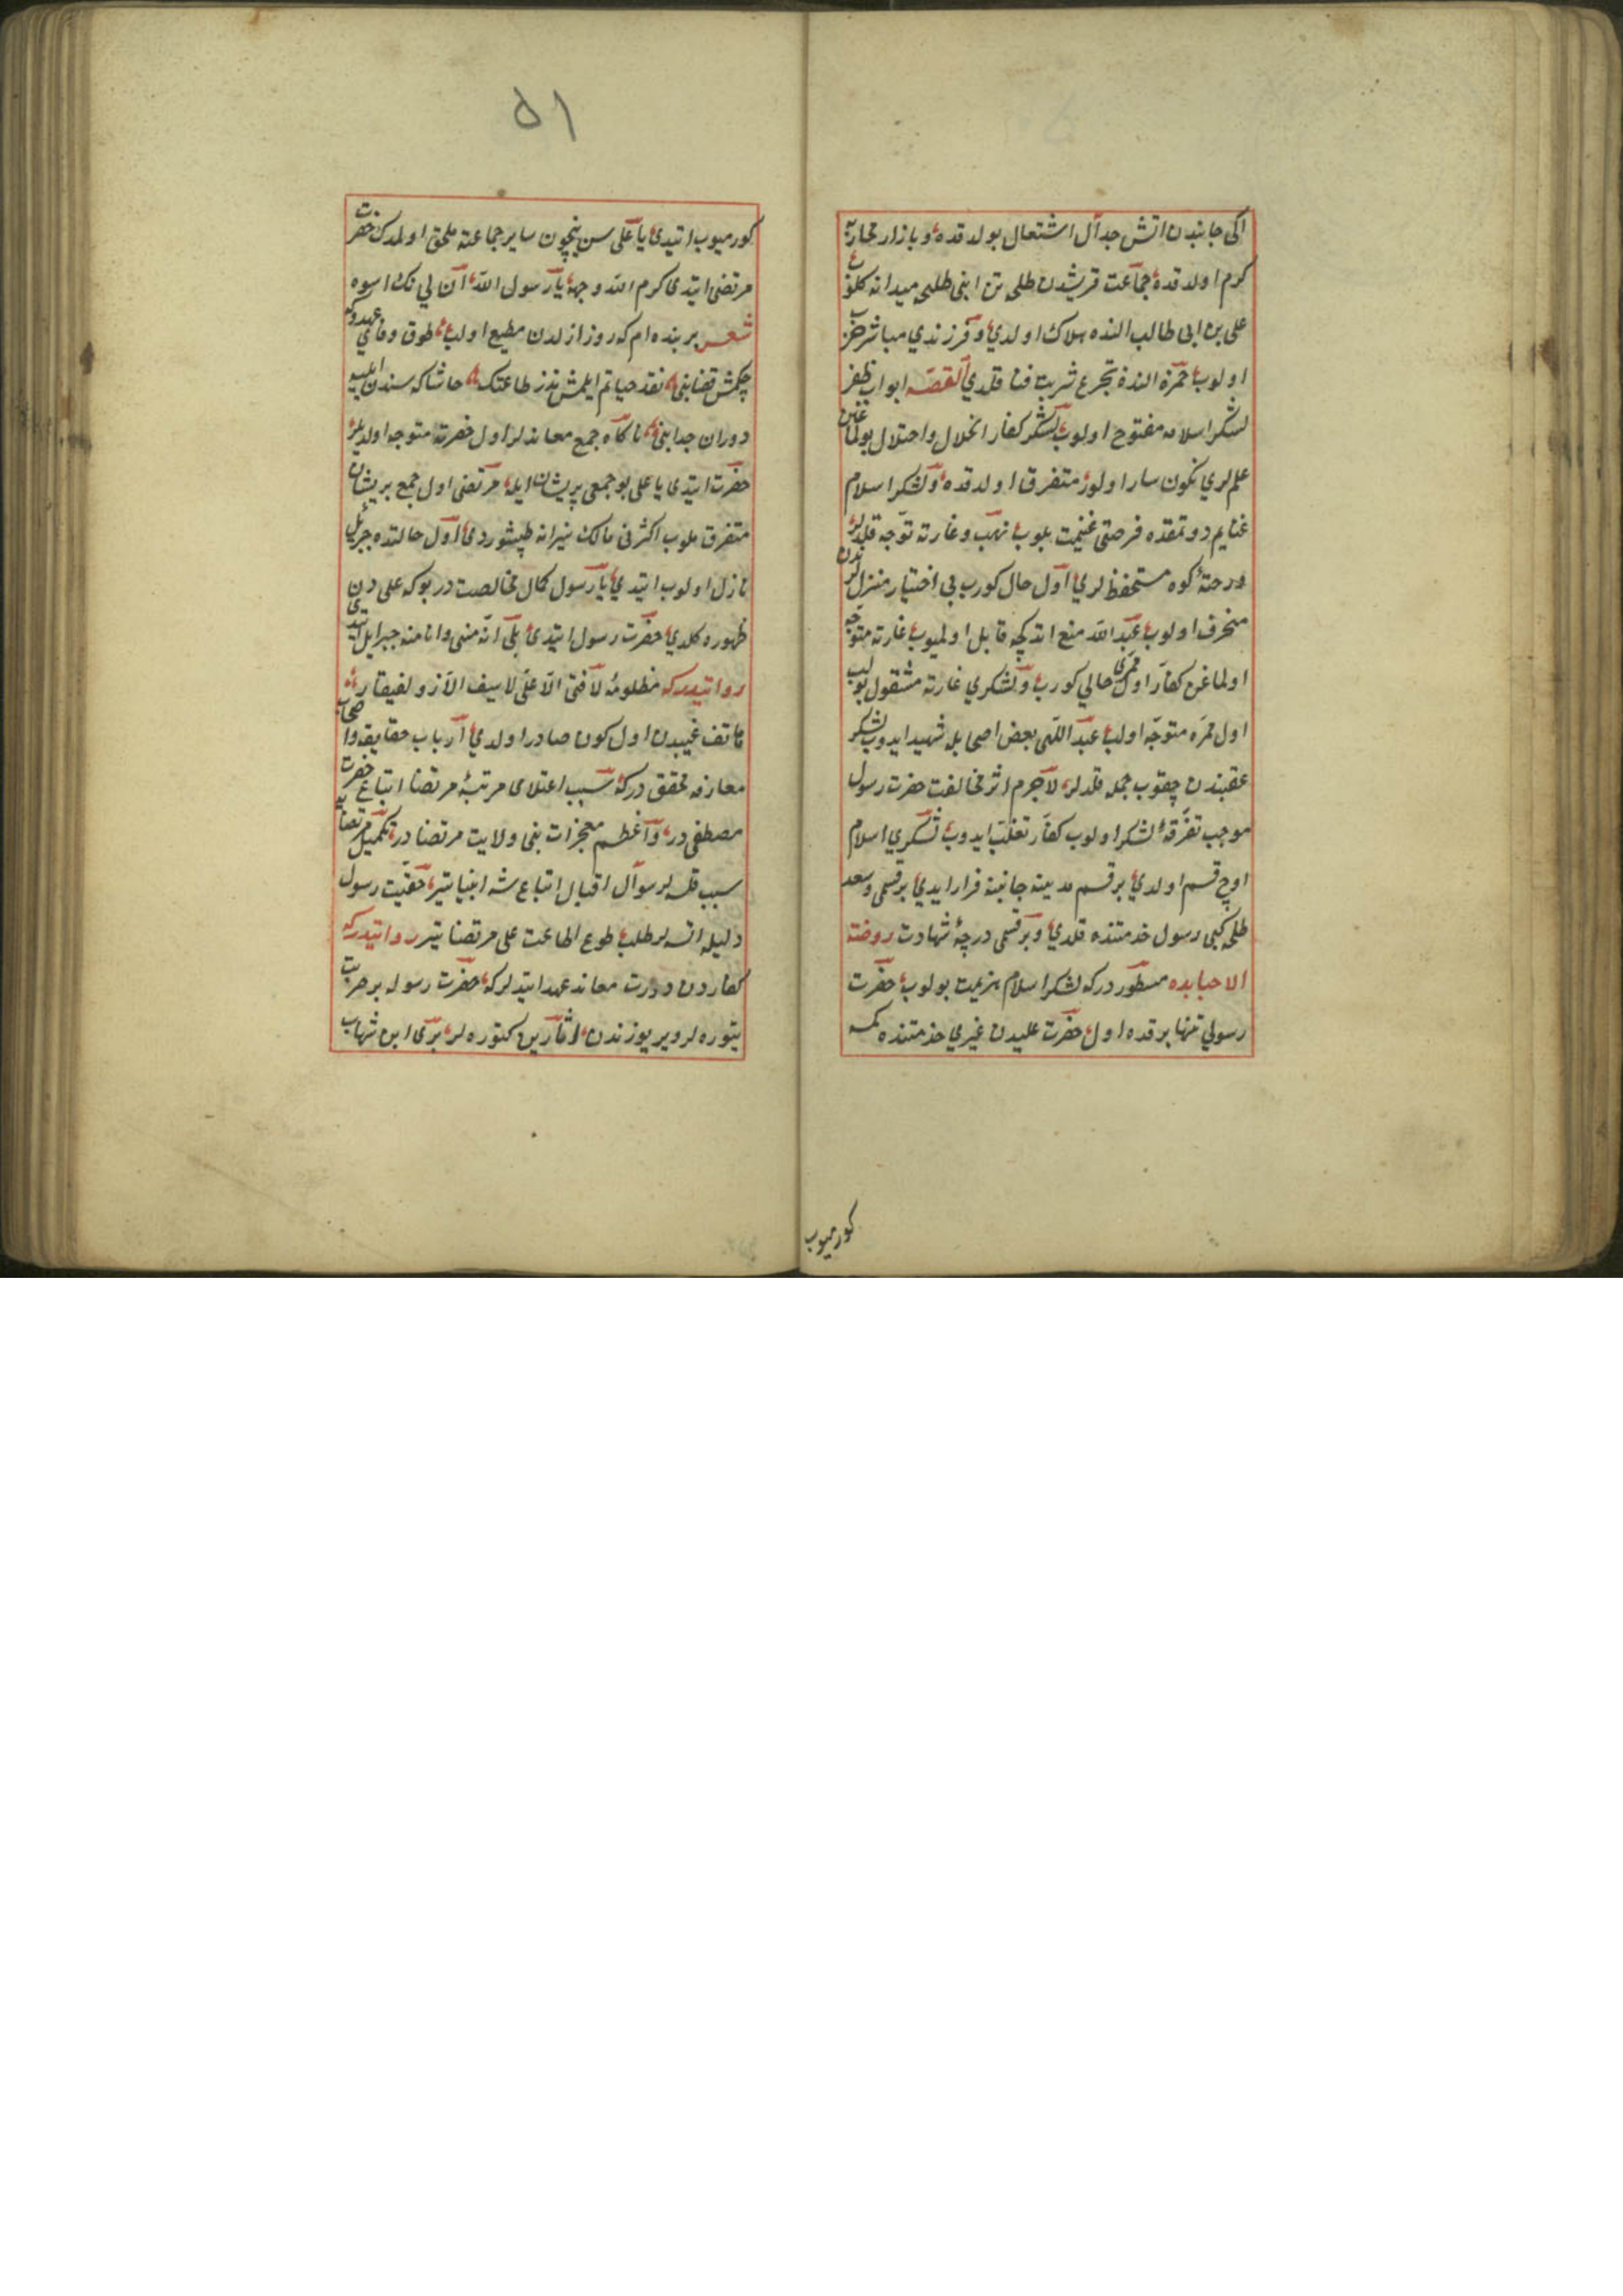 اكى جانبدن اتش جدال اشتعال بولدقده وبازار محاربه
كرم اولدقده جماعت قريشدن طلحه بن ابى طلحه ميدانه كلوب
على بن ابى طالب النده هلاك اولدي وفرزندي مباشر
اولوب حمزه النده تجرع شربت فنا قلدي القصه ابواب ظفر
لشكر اسلامه مفتوح اولوب لشكر كفار انحلال واختلال بولماغين
علملري نكون سار اولور متفرق اولدقده ولشكر اسلام
غنايم دوتمقده فرصتى غنيمت بلوب نهب وغارته توجه قلديلر
دره كوه مستحفظلري اول حال كورب بى اختيار منزللرندن
منحرف اولوب عبد الله منع اتدكچه قابل اولميوب غارته متوجه
اولماغن كفار اول ممرى خالي كورب ولشكري غارته مشغول بولب
اول ممره متوجه اولب عبد اللهى بعض اصحابله شهيد ايدوب لشكر
عقبندن چقوب حمله قلدلر لاجرم اثر مخالفت حضرت رسول
موجب تفرقه لشكر اولوب كفار تغلب ايدوب لشكري اسلام
اوچ قسم اولدي برقسم مدينه جانبنه فرار ايدي برقسمى وسعد
طلحه كبى رسول خدمتنده قلدي وبرقسمى درجه شهادت روضة
الاحبابده مسطور دركه لشكر اسلام هزيمت بولوب حضرت
رسولي تنها برقده اول حضرت عليدن غيري خدمتنده كمسه
كورميوب
۵۱
كورميوب اتيدى يا على سن نيچون ساير جماعته ملحق اولمدك حضرت
مرتضى اتيدى كرم الله وجهه يا رسول الله ان لي بك اسوه
شعر بر بنده ام كه روز ازلدن مطيع اولب طوق وفاي عهدوكه
چكمش قضا بنى نقد حياتم ايلمش نذر طاعتك حاشا كه سندن ايليه
دوران جدا بنى ناكاه جمع معاندلر اول حضرته متوجه اولديلر
حضرت اتيدى يا على بو جمعى پريشان ايله مرتضى اول جمع پريشان
متفرق قلوب اكثرنى مالك نيرانه طپشوردى اول حالتده جبرئيل
نازل اولوب اتيدي يا رسول كمال مخالصت دربوكه على دن
ظهوره كلدي حضرت رسول اتيدى بلى انه منى وانا منه جبرايل اتيدى
روايتدركه مظلومه لا فتى الا على لا سيف الا ذو لفيقار
هاتف غيبدن اول كون صادر اولدي ارباب حقايق واصحاب
معارفه محقق دركه سبب اعتلاى مرتبه مرتضا اتباع حضرت
مصطفى در واعظم معجزات نبى ولايت مرتضا در تكميل مرتضايه
سبب قلسه لر سوال اقبال اتباع شه انبيا يتير حقيت رسول
دليله انسه لر طلب طوع اطاعت على مرتضا يتير روايتدركه
كفاردن دورت معاند عهد ايتديلركه حضرت رسوله برحربت
يتوره لر وير يوزندن كتوره لر برى ابن شهاب